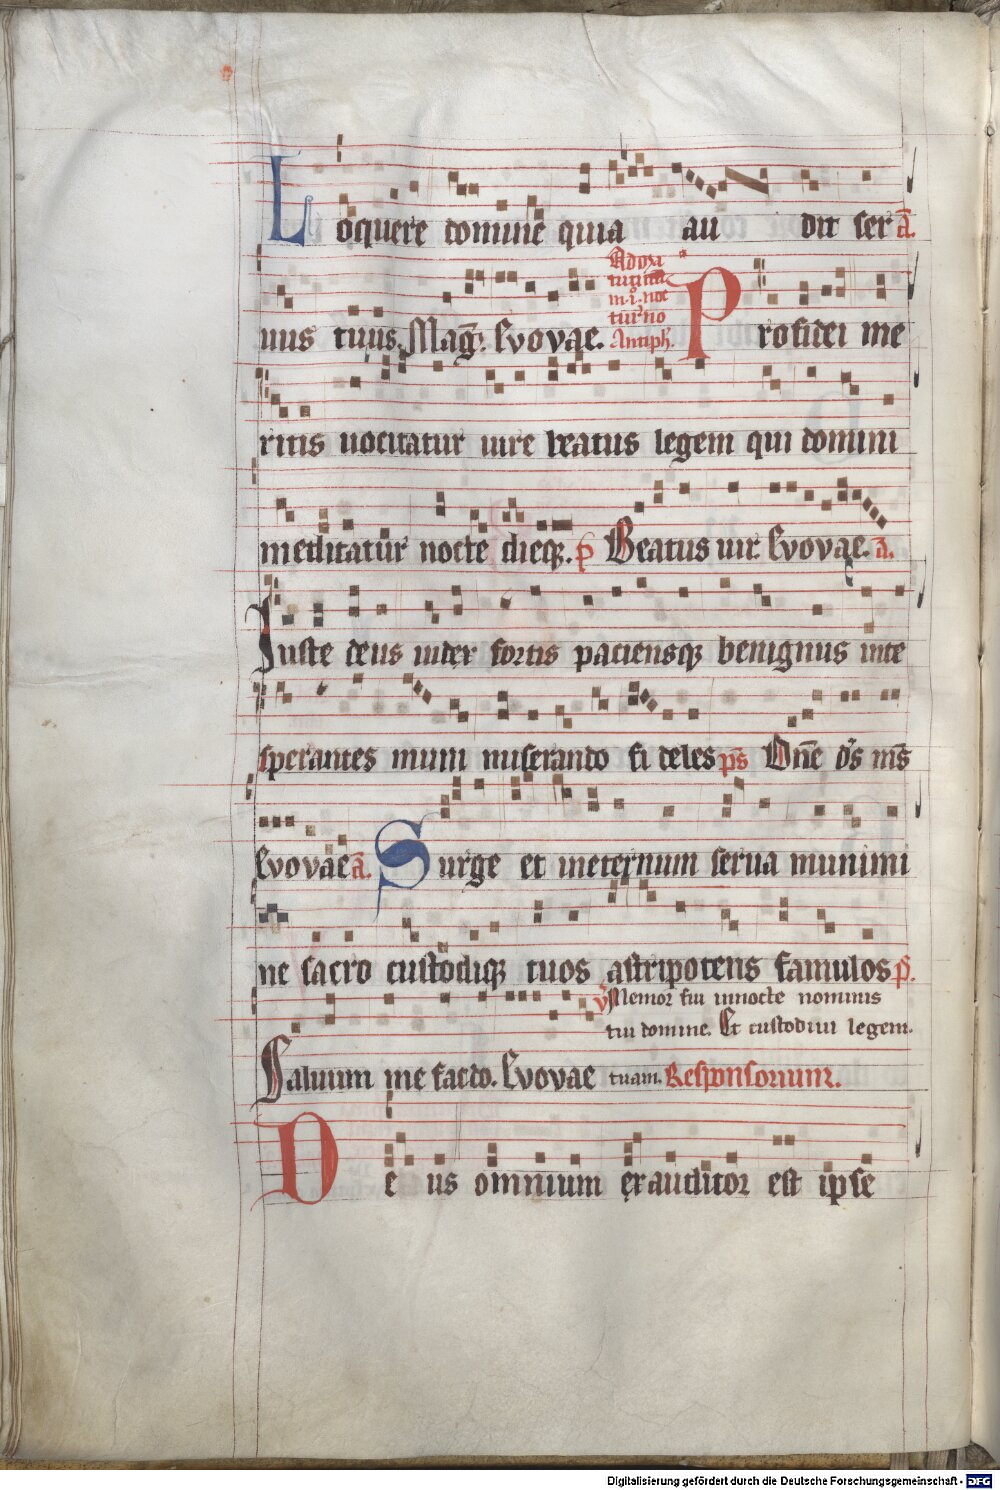 Loquere domine quia au dit ser a̅.
uus tuus. Mag̅. Evovae.
Ad ma
tuti
m. i. noc
turno
Antiph.
Pro fidei me
ritis uocitatur uire beatus legem qui domini
meditatur nocte dieq;. p̅ Beatus uir. Evovae. a̅.
Iuste deus iudex fortis paciensq; benignus inte
sperantes mum miserando fi deles p̅s D̅n̅e d̅s m̅s
Evovae a̅. Surge et ineternum serua munimi
ne sacro custodiq; tuos astripotens famulos p̅s.
v̅ Memor fui innocte nominis
tui domine. Et custodiui legem
Saluum me facdo. Evovae tuam. Responsorium.
De us omnium exauditor est ipse
Digitalisierung gefördert durch die Deutsche Forschungsgemeinschaft - DFG